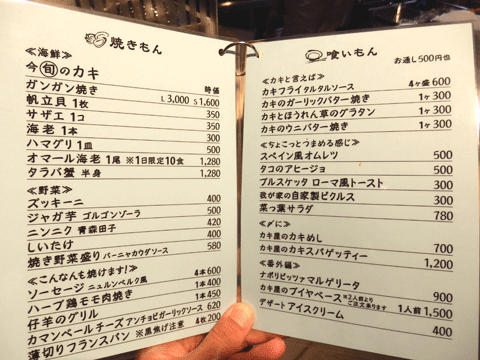 焼きもん
≪海鮮≫
今旬のカキ 時価
ガンガン焼き L3,000 S1,600
帆立貝 1枚 350
サザエ 1コ 350
海老 1本 300
ハマグリ 1皿 500
オマール海老 1尾 ※1日限定10食 1,280
タラバ蟹 半身 1,280
≪野菜≫
ズッキーニ 400
ジャガ芋 ゴルゴンゾーラ 500
ニンニク 青森田子 400
しいたけ 400
焼き野菜盛り バーニャカウダソース 580
≪こんなんも焼けます!≫
ソーセージ ニュルンベルク風 4本600
ハーブ鶏モモ肉焼き 1本400
仔羊のグリル 1本450
カマンベールチーズ アンチョビガーリックソース 620
薄切りフランスパン ※黒焦げ注意 4枚200
喰いもん
お通し500円也
≪カキと言えば≫
カキフライタルタルソース 4ヶ盛600
カキのガーリックバター焼き 1ヶ300
カキとほうれん草のグラタン 1ヶ300
カキのウニバター焼き 1ヶ300
≪ちょこっとつまめる感じ≫
スペイン風オムレツ 500
タコのアヒージョ 500
ブルスケッタ ローマ風トースト 300
我が家の自家製ピクルス 300
菜っ葉サラダ 780
≪〆に≫
カキ屋のカキめし 700
カキ屋のカキスパゲッティー 1,200
≪番外編≫
ナポリピッツァマルゲリータ 900
カキ屋のブイヤベース ※2人前よりご注文承ります 1人前1,500
デザートアイスクリーム 400